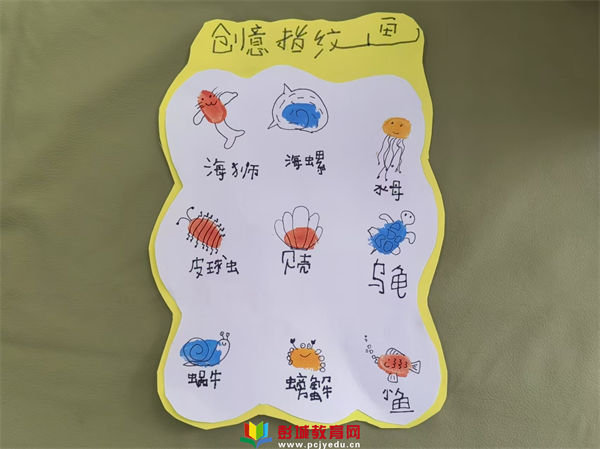 创意指纹画
海狮
海螺
水母
皮球虫
贝壳
乌龟
蜗牛
螃蟹
小鱼
彭城教育网
www.pcjyedu.cn